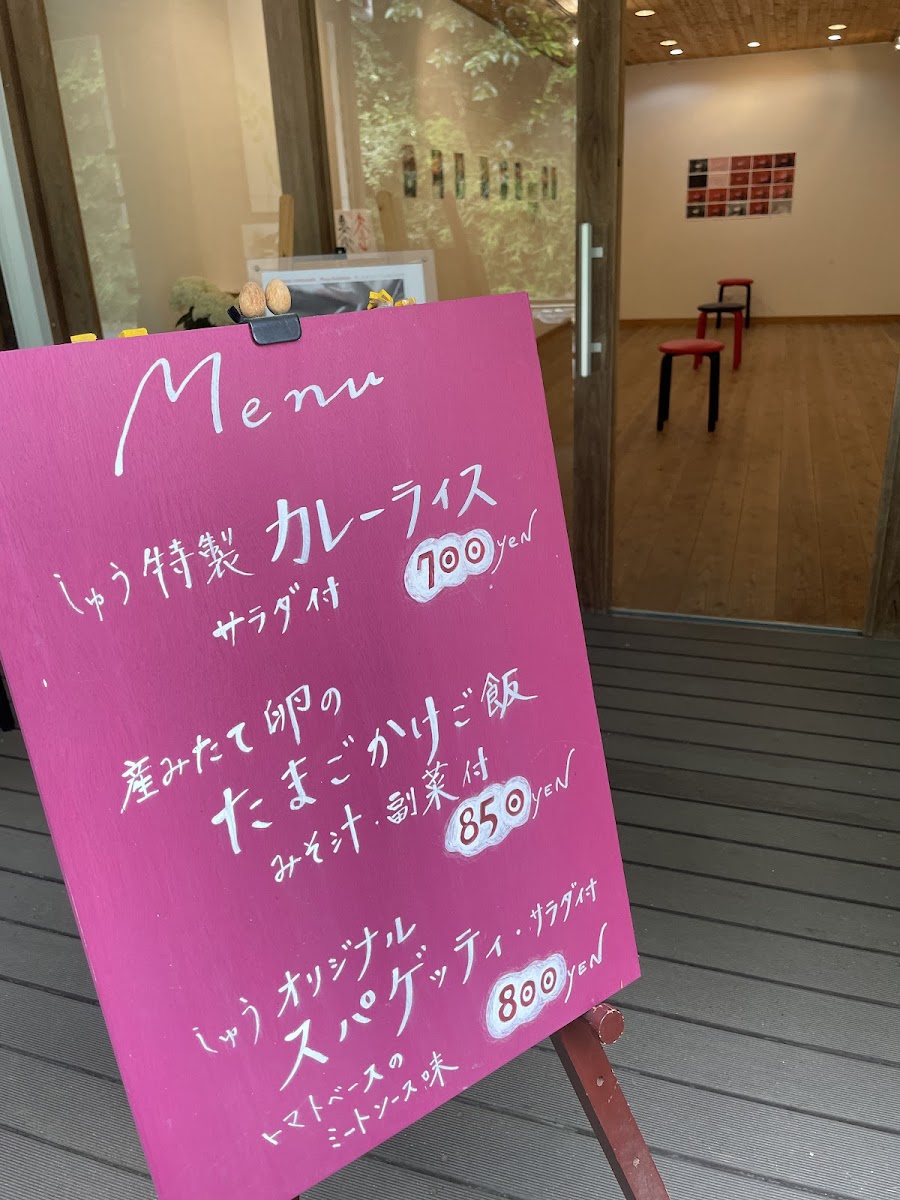 Menu
しゅう特製 カレーライス
サラダ付 700 YEN
産みたて卵の
たまごかけご飯
みそ汁・副菜付 850 YEN
しゅうオリジナル
スパゲッティ・サラダ付
800 YEN
トマトベースの
ミートソース味